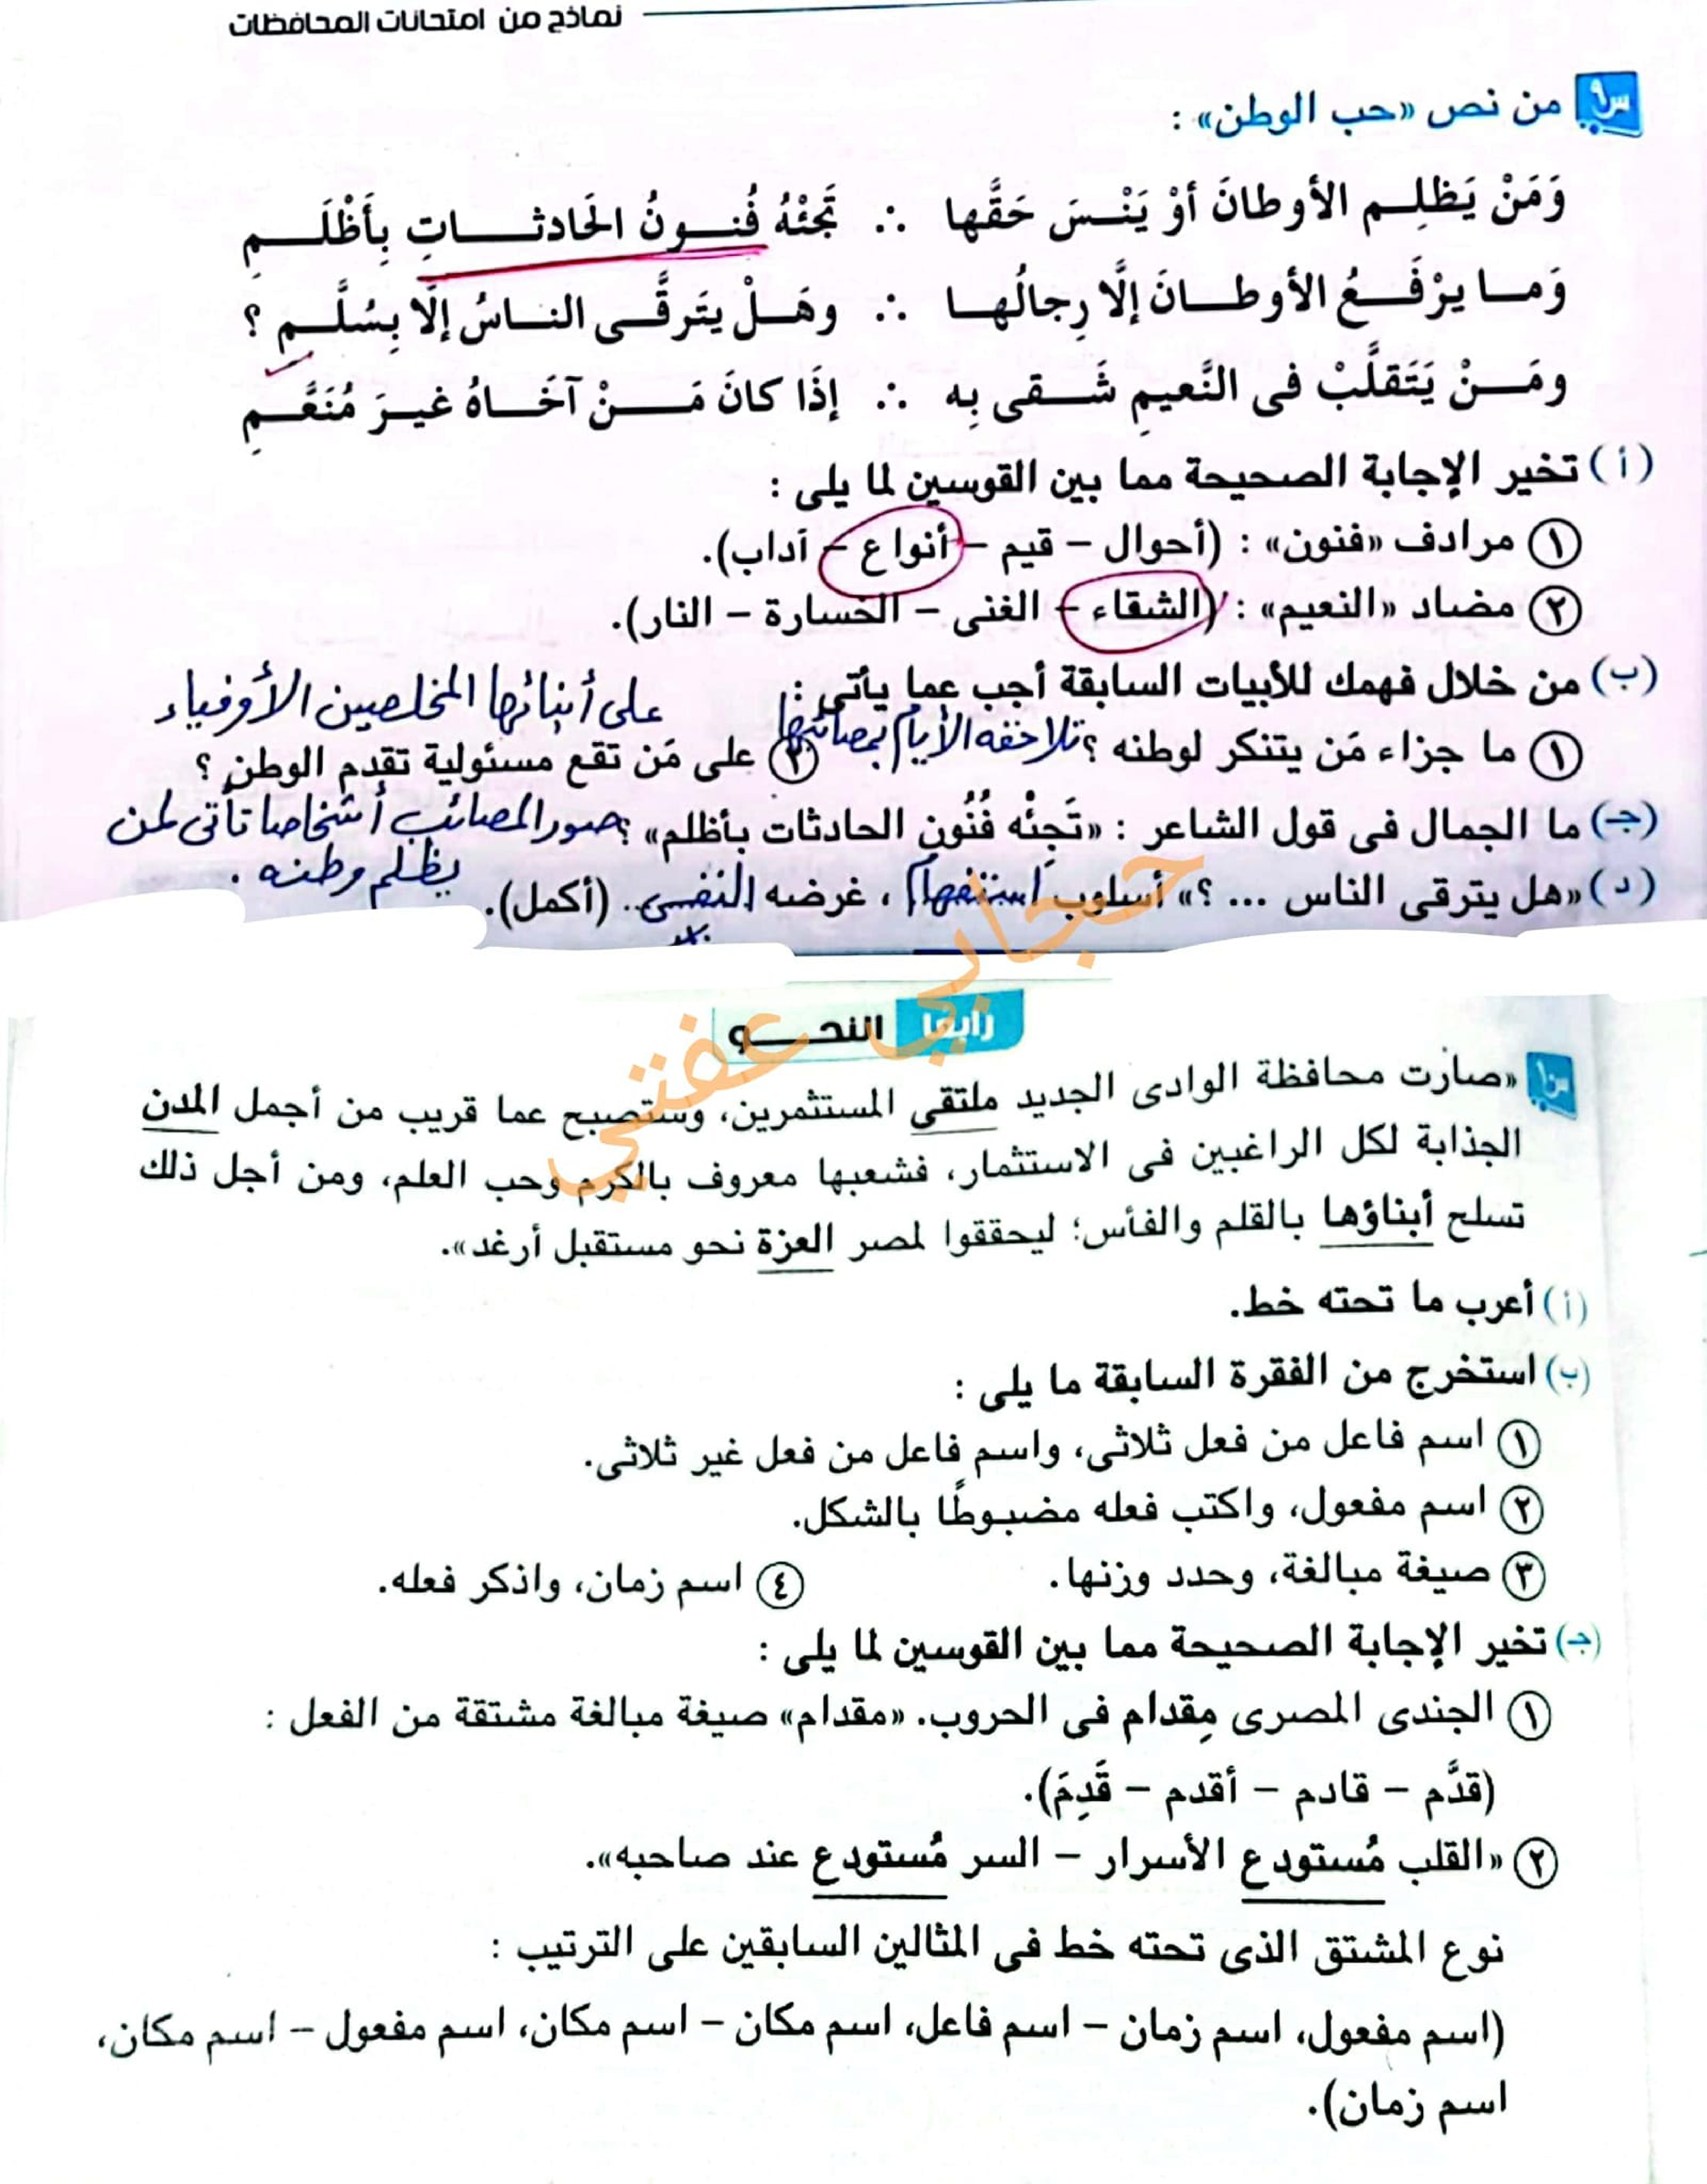 نماذج من امتحانات المحافظات
س٩ من نص «حب الوطن» :
وَمَنْ يَظلِم الأوطانَ أوْ يَنْسَ حَقَّها ∴ تَجئْهُ فُنونُ الحَادثاتِ بِأَظْلَمِ
وَما يرْفَعُ الأوطانَ إلَّا رِجالُها ∴ وهَلْ يتَرقَّى الناسُ إلَّا بِسُلَّمِ ؟
ومَنْ يَتَقلَّبْ فى النَّعيمِ شَقى بِه ∴ إذَا كانَ مَنْ آخَاهُ غيرَ مُنَعَّمِ
(أ) تخير الإجابة الصحيحة مما بين القوسين لما يلى :
١ مرادف «فنون» : (أحوال – قيم – أنواع – آداب).
٢ مضاد «النعيم» : (الشقاء – الغنى – الخسارة – النار).
(ب) من خلال فهمك للأبيات السابقة أجب عما يأتى :
على أبنائها المخلصين الأوفياء
١ ما جزاء مَن يتنكر لوطنه ؟ تلاحقه الأيام بمصائبها ٢ على مَن تقع مسئولية تقدم الوطن ؟
(جـ) ما الجمال فى قول الشاعر : «تَجِئْه فُنُون الحادثات بأظلم» ؟ صور المصائب أشخاصا تأتى لمن
يظلم وطنه .
(د) «هل يترقى الناس ... ؟» أسلوب استفهام ، غرضه النفى .. (أكمل).
حجابي عفتي
رابعا النحو
س١٠ «صارت محافظة الوادى الجديد ملتقى المستثمرين، وستصبح عما قريب من أجمل المدن
الجذابة لكل الراغبين فى الاستثمار، فشعبها معروف بالكرم وحب العلم، ومن أجل ذلك
تسلح أبناؤها بالقلم والفأس؛ ليحققوا لمصر العزة نحو مستقبل أرغد».
(أ) أعرب ما تحته خط.
(ب) استخرج من الفقرة السابقة ما يلى :
١ اسم فاعل من فعل ثلاثى، واسم فاعل من فعل غير ثلاثى.
٢ اسم مفعول، واكتب فعله مضبوطًا بالشكل.
٣ صيغة مبالغة، وحدد وزنها. ٤ اسم زمان، واذكر فعله.
(جـ) تخير الإجابة الصحيحة مما بين القوسين لما يلى :
١ الجندى المصرى مِقدام فى الحروب. «مقدام» صيغة مبالغة مشتقة من الفعل :
(قدَّم – قادم – أقدم – قَدِمَ).
٢ «القلب مُستودع الأسرار – السر مُستودع عند صاحبه».
نوع المشتق الذى تحته خط فى المثالين السابقين على الترتيب :
(اسم مفعول، اسم زمان – اسم فاعل، اسم مكان – اسم مكان، اسم مفعول – اسم مكان،
اسم زمان).